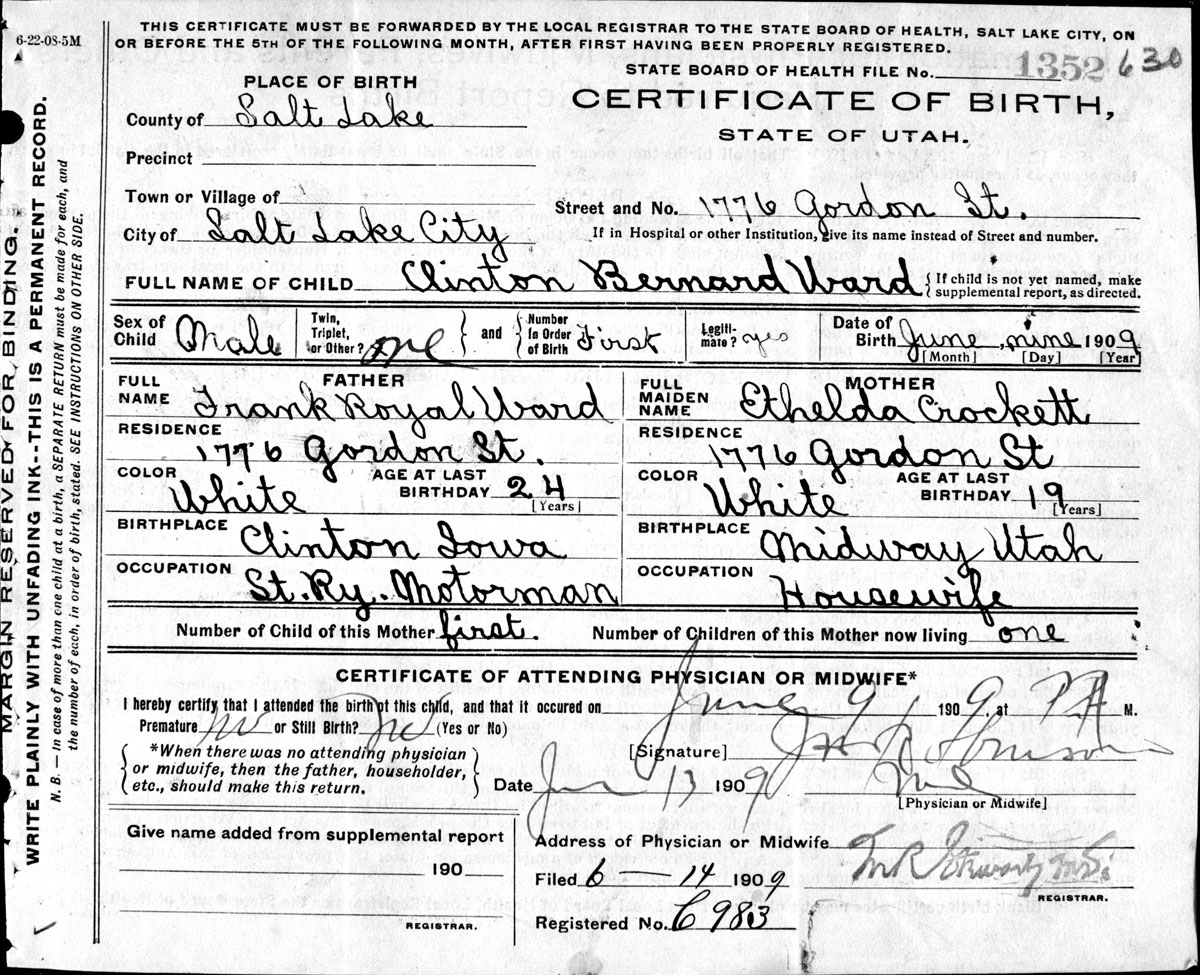 THIS CERTIFICATE MUST BE FORWARDED BY THE LOCAL REGISTRAR TO THE STATE BOARD OF HEALTH, SALT LAKE CITY, ON
OR BEFORE THE 5TH OF THE FOLLOWING MONTH, AFTER FIRST HAVING BEEN PROPERLY REGISTERED.
6-22-08-5M
STATE BOARD OF HEALTH FILE No. 1352 630
PLACE OF BIRTH
CERTIFICATE OF BIRTH,
STATE OF UTAH.
County of Salt Lake
Precinct
Town or Village of
Street and No. 1776 Gordon St.
City of Salt Lake City
If in Hospital or other Institution, give its name instead of Street and number.
FULL NAME OF CHILD Clinton Bernard Ward { If child is not yet named, make
supplemental report, as directed.
Sex of Child Male
Twin, Triplet, or Other? one } and { Number In Order of Birth First
Legiti-mate? yes
Date of Birth June, nine 1909
[Month] [Day] [Year]
FATHER
FULL NAME Frank Royal Ward
RESIDENCE
1776 Gordon St.
COLOR White AGE AT LAST BIRTHDAY 24
[Years]
BIRTHPLACE
Clinton Iowa
OCCUPATION
St. Ry. Motorman
MOTHER
FULL MAIDEN NAME Ethelda Crockett
RESIDENCE
1776 Gordon St
COLOR White AGE AT LAST BIRTHDAY 19
[Years]
BIRTHPLACE
Midway Utah
OCCUPATION
Housewife
Number of Child of this Mother first. Number of Children of this Mother now living one
CERTIFICATE OF ATTENDING PHYSICIAN OR MIDWIFE*
I hereby certify that I attended the birth of this child, and that it occured on June 9 1909, at M.
Premature no or Still Birth? no (Yes or No)
{ *When there was no attending physician
or midwife, then the father, householder,
etc., should make this return. }
[Signature]
Date June 13 1909
[Physician or Midwife]
Give name added from supplemental report
190
REGISTRAR.
Address of Physician or Midwife
Filed 6 14 1909
REGISTRAR.
Registered No. 6983
MARGIN RESERVED FOR BINDING.
WRITE PLAINLY WITH UNFADING INK--THIS IS A PERMANENT RECORD.
N. B. — In case of more than one child at a birth, a SEPARATE RETURN must be made for each, and
the number of each, in order of birth, stated. SEE INSTRUCTIONS ON OTHER SIDE.